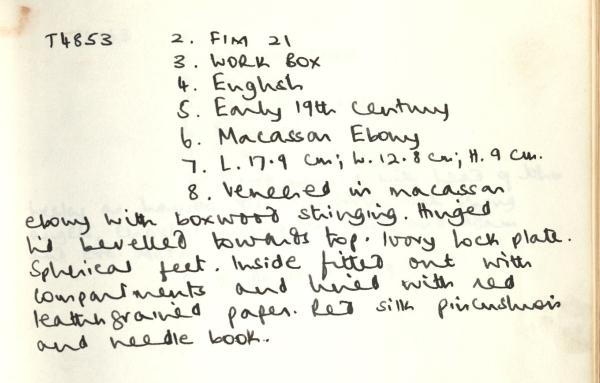 T4853 2. FIM 21
3. WORK BOX
4. English
5. Early 19th century
6. Macassar Ebony
7. L. 17.9 cm; W. 12.8 cm; H. 9 cm.
8. Veneered in macassar
ebony with boxwood stringing. Hinged
lid bevelled towards top. Ivory lock plate.
Spherical feet. Inside fitted out with
compartments and lined with red
leather grained paper. Red silk pincushion
and needle book.